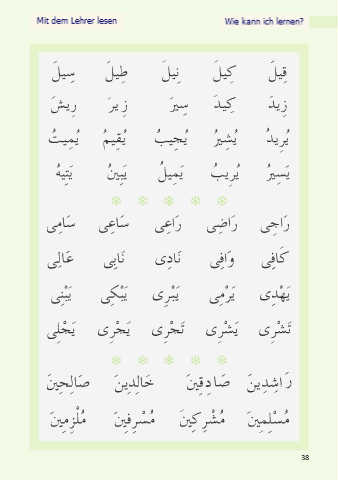 Mit dem Lehrer lesen
Wie kann ich lernen?
قِيلَ كِيلَ نِيلَ طِيلَ سِيلَ
زِيدَ كِيدَ سِيرَ زِيرَ رِيشَ
يُرِيدُ يُشِيرُ يُجِيبُ يُقِيمُ يُمِيتُ
يَسِيرُ يُرِيبُ يَمِيلُ يَبِينُ يَتِيهُ
رَاجِى رَاضِى رَاعِى سَاعِى سَامِى
كَافِى وَافِى نَادِى نَابِى عَالِى
يَهْدِى يَرْمِى يَبْرِى يَبْكِى يَبْنِى
تَشْرِى يَشْرِى تَجْرِى يَجْرِى يَجْلِى
رَاشِدِينَ صَادِقِينَ خَالِدِينَ صَالِحِينَ
مُسْلِمِينَ مُشْرِكِينَ مُسْرِفِينَ مُلْزِمِينَ
38